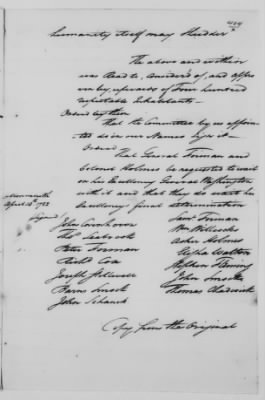 419
humanity itself may Shudder
The above and within
was Read to, Considered of, and appro
ven by, upwards of Four hundred
respectable Inhabitants—
Ordered by them
That the Committee by us appoin
ted do in our Names Sign it—
Ordered
That General Forman and
Colonel Holmes be requested to wait
on his Excellency General Washington
with it and that they do wait his
Excellency's final determination
Monmouth
April 14th 1782
Signed
John Covenhoven
Thos Seabrook
Peter Forman
Richd Cox
Joseph Stillwell
Barns Smock
John Schanck
Saml Forman
Wm Willcocks
Asher Holmes
Elisha Walton
Stephen Fleming
John Smock
Thomas Chadwick
Copy from the Original